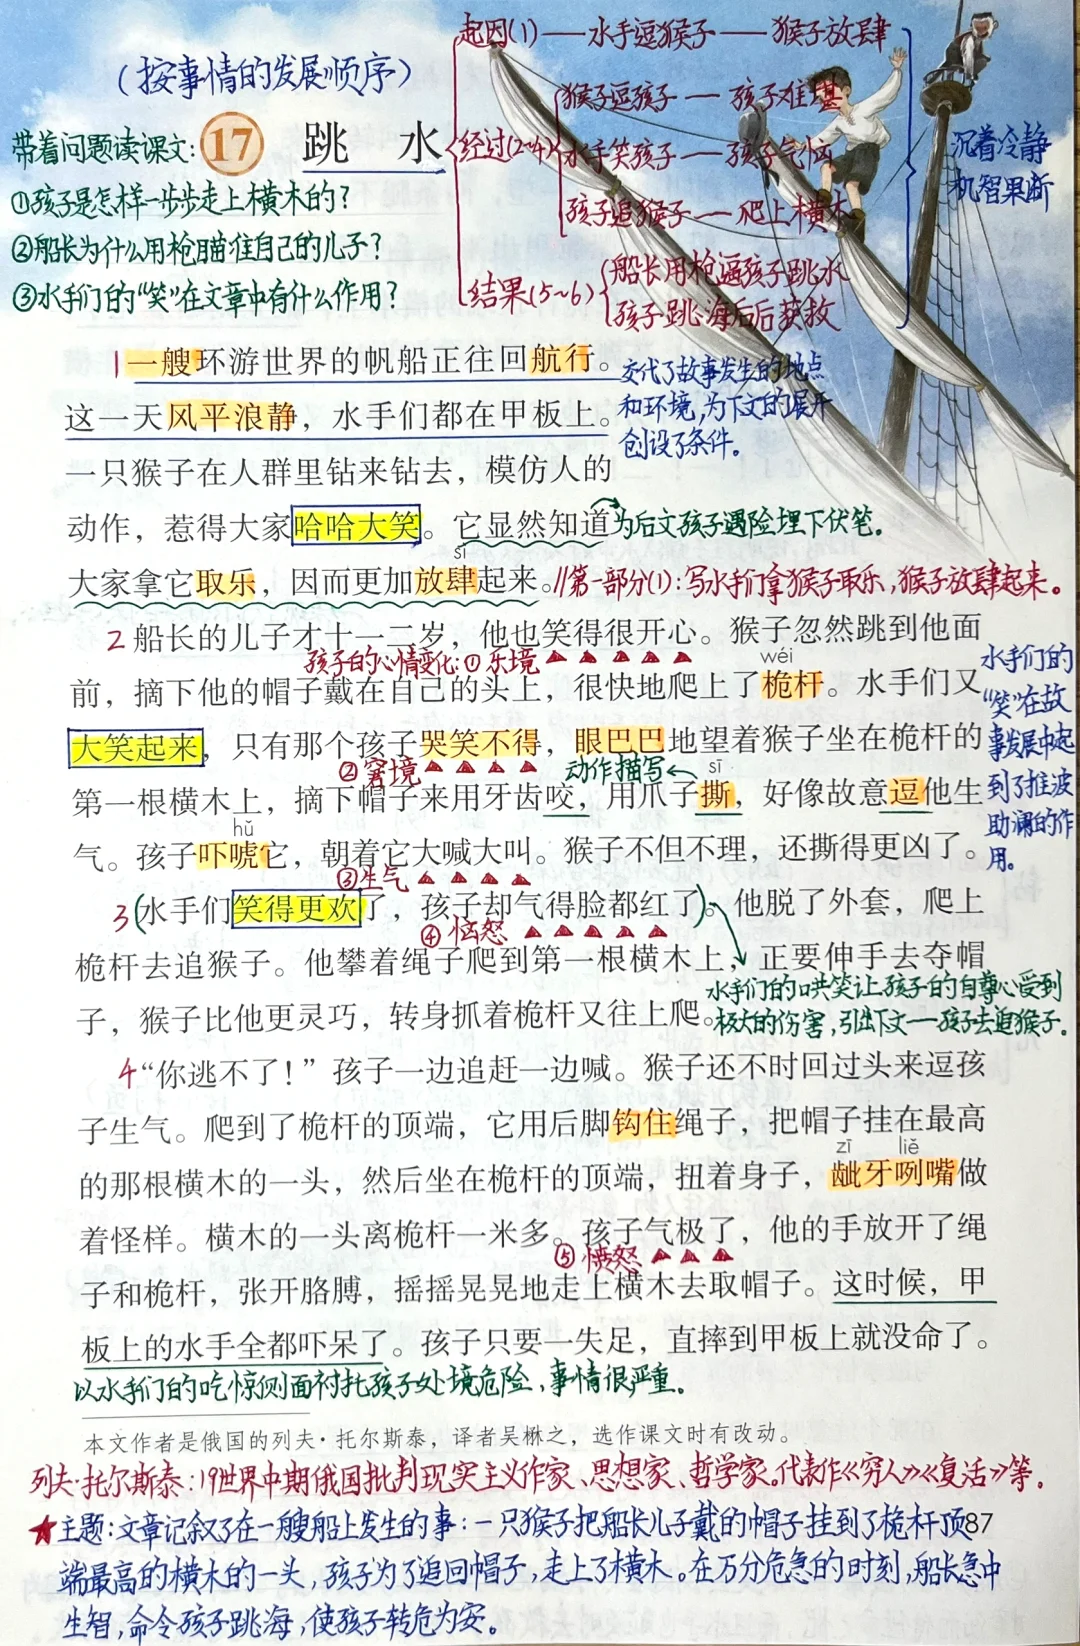 （按事情的发展顺序）
起因(1)——水手逗猴子——猴子放肆
经过(2~4)
猴子逗孩子——孩子难堪
水手笑孩子——孩子气恼
孩子追猴子——爬上横木
结果(5~6)
船长用枪逼孩子跳水
孩子跳海后后获救
沉着冷静
机智果断
17 跳水
带着问题读课文:
①孩子是怎样一步步走上横木的?
②船长为什么用枪瞄准自己的儿子?
③水手们的“笑”在文章中有什么作用?
1一艘环游世界的帆船正往回航行。
这一天风平浪静，水手们都在甲板上。
交代了故事发生的地点
和环境,为下文的展开
创设了条件。
一只猴子在人群里钻来钻去，模仿人的
动作，惹得大家哈哈大笑。它显然知道
为后文孩子遇险埋下伏笔。
sì
大家拿它取乐，因而更加放肆起来。
//第一部分(1):写水手们拿猴子取乐,猴子放肆起来。
2船长的儿子才十一二岁，他也笑得很开心。猴子忽然跳到他面
孩子的心情变化:①乐境
wéi
前，摘下他的帽子戴在自己的头上，很快地爬上了桅杆。水手们又
大笑起来，只有那个孩子哭笑不得，眼巴巴地望着猴子坐在桅杆的
②窘境
动作描写
sī
第一根横木上，摘下帽子来用牙齿咬，用爪子撕，好像故意逗他生
水手们的
“笑”在故
事发展中起
到了推波
助澜的作
用。
hǔ
气。孩子吓唬它，朝着它大喊大叫。猴子不但不理，还撕得更凶了。
③生气
3(水手们笑得更欢了，孩子却气得脸都红了)。他脱了外套，爬上
④恼怒
桅杆去追猴子。他攀着绳子爬到第一根横木上，正要伸手去夺帽
子，猴子比他更灵巧，转身抓着桅杆又往上爬。
水手们的哄笑让孩子的自尊心受到
极大的伤害,引出下文——孩子去追猴子.
4“你逃不了！”孩子一边追赶一边喊。猴子还不时回过头来逗孩
子生气。爬到了桅杆的顶端，它用后脚钩住绳子，把帽子挂在最高
zī liě
的那根横木的一头，然后坐在桅杆的顶端，扭着身子，龇牙咧嘴做
着怪样。横木的一头离桅杆一米多。孩子气极了，他的手放开了绳
⑤愤怒
子和桅杆，张开胳膊，摇摇晃晃地走上横木去取帽子。这时候，甲
板上的水手全都吓呆了。孩子只要一失足，直摔到甲板上就没命了。
以水手们的吃惊侧面衬托孩子处境危险,事情很严重。
本文作者是俄国的列夫·托尔斯泰，译者吴楙之，选作课文时有改动。
列夫·托尔斯泰:19世界中期俄国批判现实主义作家、思想家、哲学家。代表作《穷人》《复活》等.
★主题:文章记叙了在一艘船上发生的事:一只猴子把船长儿子戴的帽子挂到了桅杆顶
87
端最高的横木的一头,孩子为了追回帽子,走上了横木。在万分危急的时刻,船长急中
生智,命令孩子跳海,使孩子转危为安。